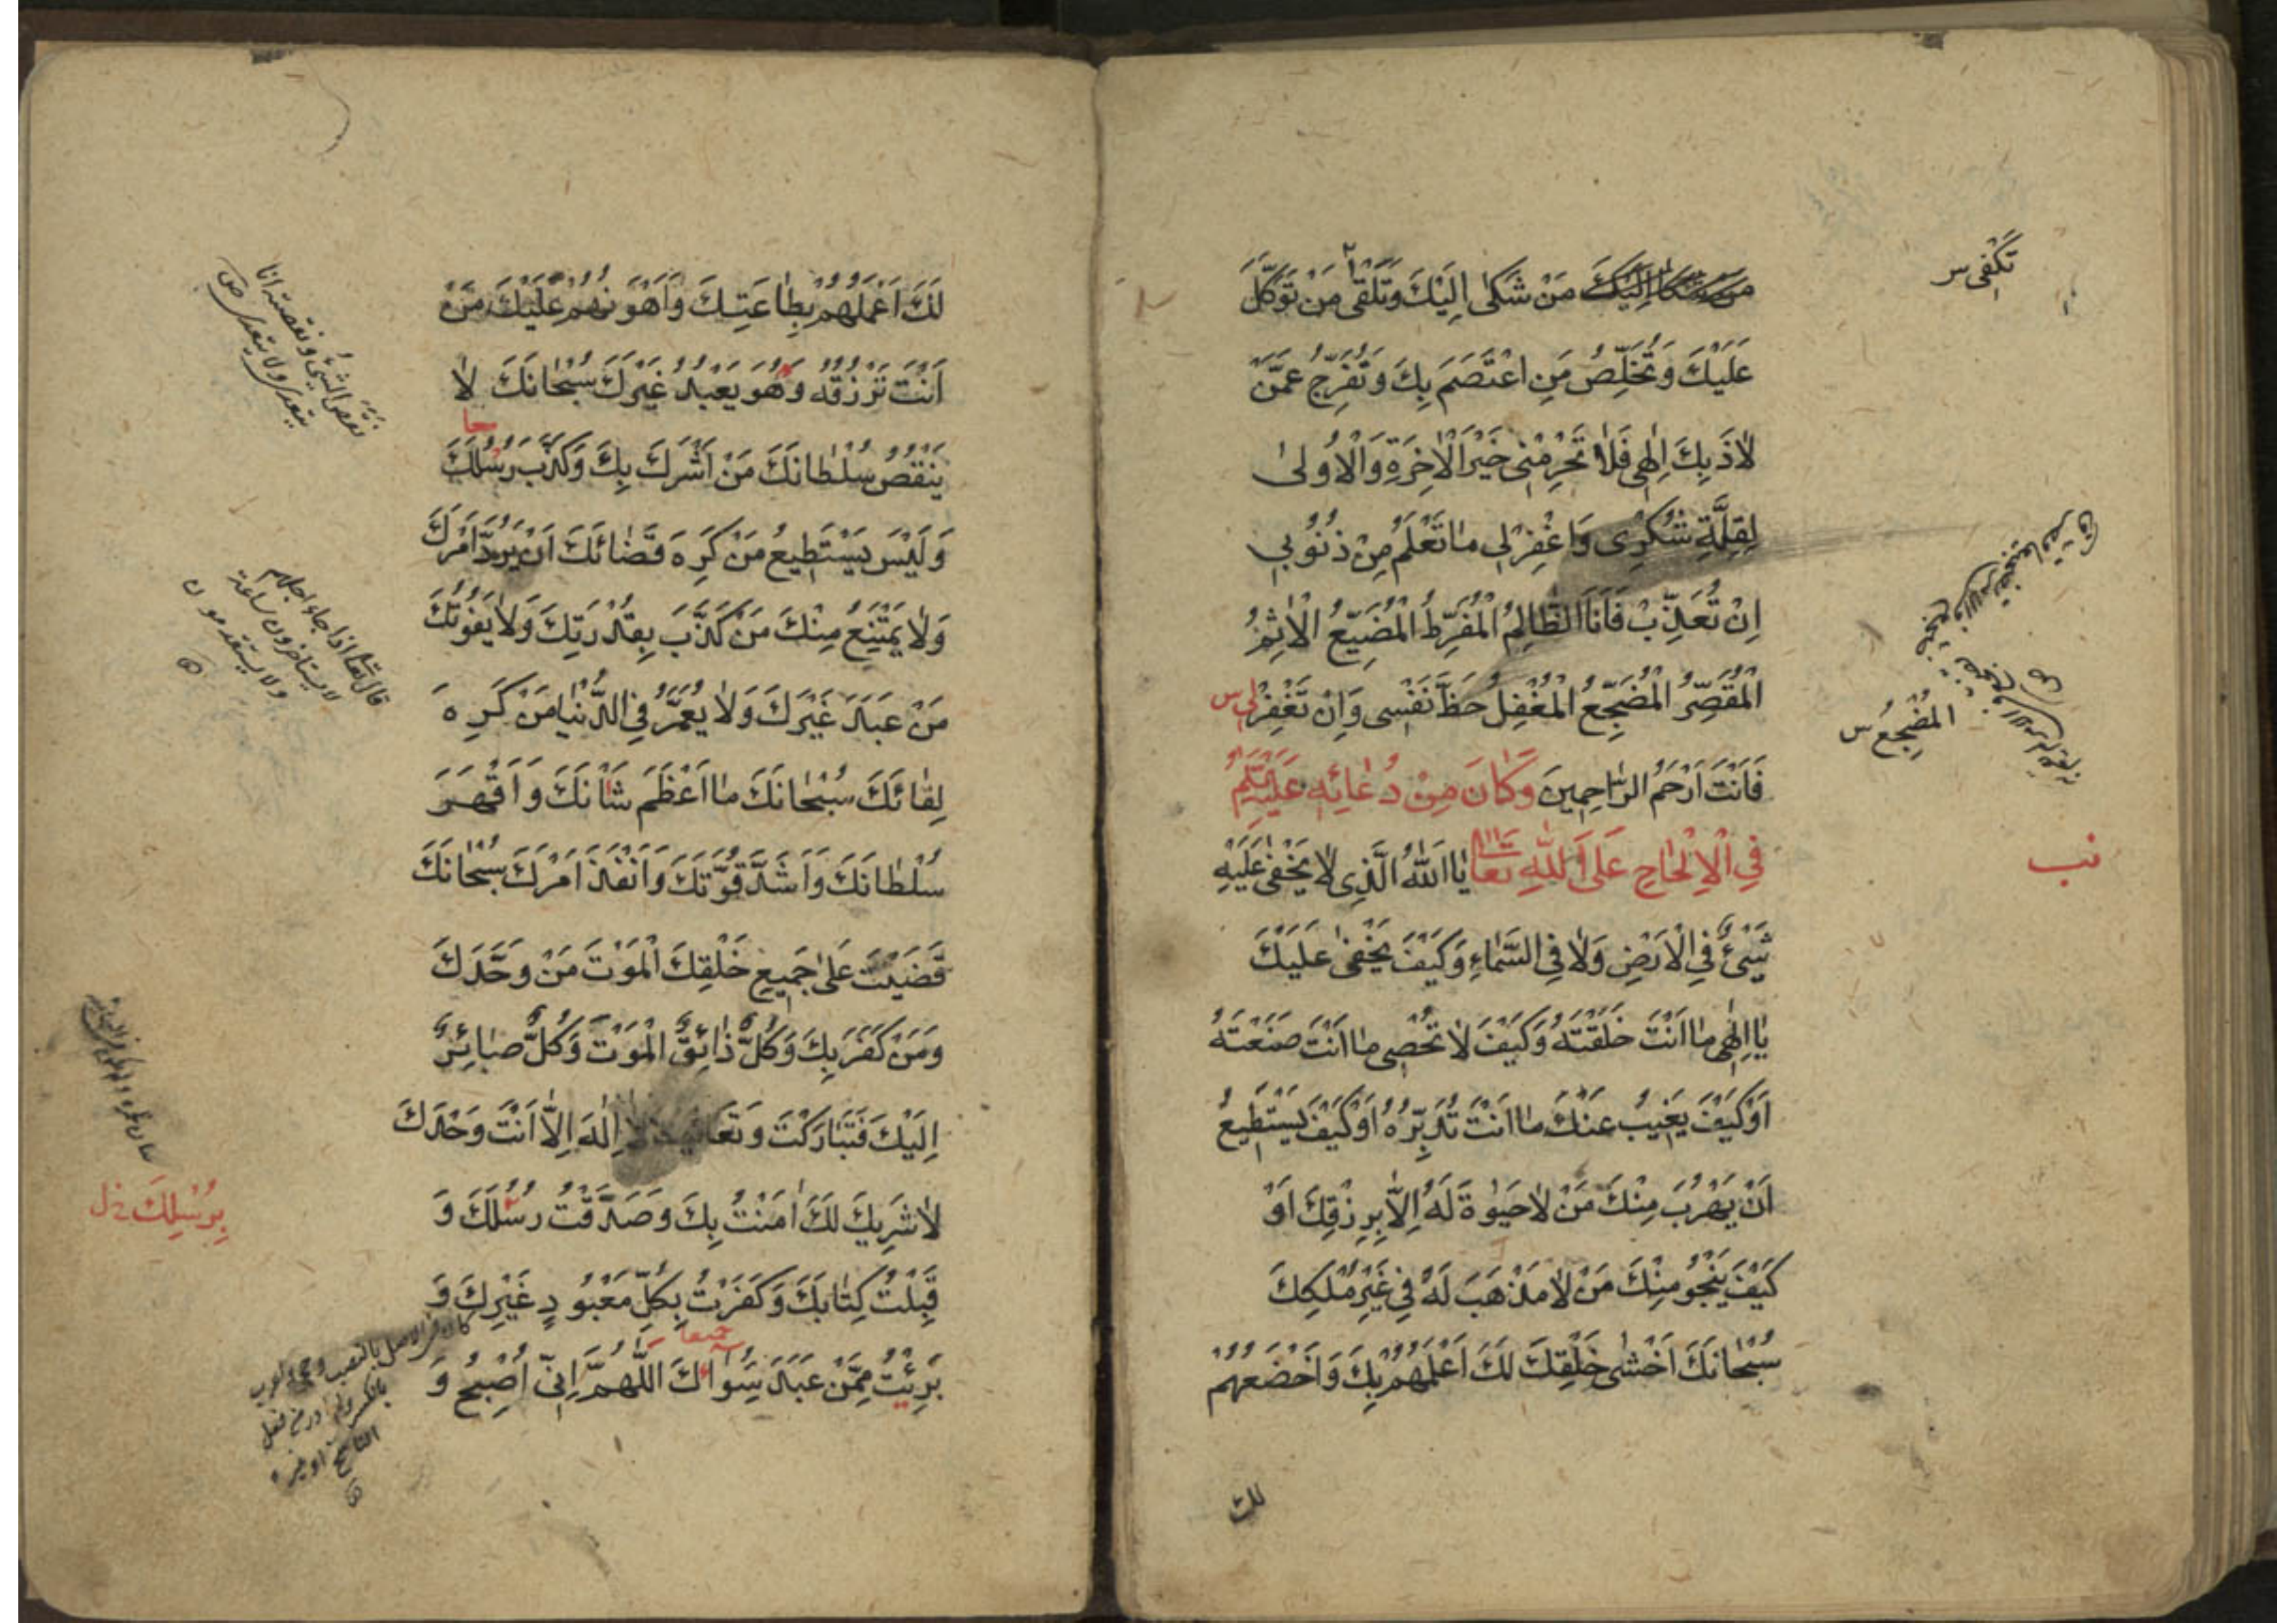 مَنْ شَكٰى اِلَيْكَ وَتَلْقٰى مَنْ تَوَكَّلَ
عَلَيْكَ وَتُخَلِّصُ مَنِ اعْتَصَمَ بِكَ وَتُفَرِّجُ عَمَّنْ
لاٰذَ بِكَ اِلٰهِى فَلاٰ تَحْرِمْنِى خَيْرَ الْاٰخِرَةِ وَالْاُولىٰ
لِقِلَّةِ شُكْرِى وَاغْفِرْلِى مٰا تَعْلَمُ مِنْ ذُنُوبِى
اِنْ تُعَذِّبْ فَاَنَا الظّٰالِمُ الْمُفَرِّطُ الْمُضَيِّعُ الْاٰثِمُ
الْمُقَصِّرُ الْمُضَجِّعُ الْمُغْفِلُ حَظَّ نَفْسِى وَاِنْ تَغْفِرْ لِى س
فَاَنْتَ اَرْحَمُ الرّٰاحِمِينَ وَكٰانَ مِنْ دُعٰائِهِ عَلَيْهِ
فِى الْاِلْحٰاحِ عَلَى اللّٰهِ تَعٰا يٰا اَللّٰهُ الَّذِى لاٰ يَخْفٰى عَلَيْهِ
شَيْئٌ فِى الْاَرْضِ وَلاٰ فِى السَّمٰاءِ وَكَيْفَ يَخْفٰى عَلَيْكَ
يٰا اِلٰهِى مٰا اَنْتَ خَلَقْتَهُ وَكَيْفَ لاٰ تُحْصِى مٰا اَنْتَ صَنَعْتَهُ
اَوْ كَيْفَ يَغِيبُ عَنْكَ مٰا اَنْتَ تُدَبِّرُهُ اَوْ كَيْفَ يَسْتَطِيعُ
اَنْ يَهْرُبَ مِنْكَ مَنْ لاٰ حَيٰوةَ لَهُ اِلاّٰ بِرِزْقِكَ اَوْ
كَيْفَ يَنْجُو مِنْكَ مَنْ لاٰ مَذْهَبَ لَهُ فِى غَيْرِ مُلْكِكَ
سُبْحٰانَكَ اَخْشٰى خَلْقِكَ لَكَ اَعْلَمُهُمْ بِكَ وَاَخْضَعُهُمْ
لك
تَكْفِى س
المُضْجِعُ س
نب
لَكَ اَعْمَلُهُمْ بِطٰاعَتِكَ وَاَهْوَنُهُمْ عَلَيْكَ مَنْ
اَنْتَ تَرْزُقُهُ وَهُوَ يَعْبُدُ غَيْرَكَ سُبْحٰانَكَ لاٰ
يَنْقُصُ سُلْطٰانَكَ مَنْ اَشْرَكَ بِكَ وَكَذَّبَ رُسُلَكَ
وَلَيْسَ يَسْتَطِيعُ مَنْ كَرِهَ قَضٰائَكَ اَنْ يَرُدَّ اَمْرَكَ
وَلاٰ يَمْتَنِعُ مِنْكَ مَنْ كَذَّبَ بِقُدْرَتِكَ وَلاٰ يَفُوتُكَ
مَنْ عَبَدَ غَيْرَكَ وَلاٰ يُعَمَّرُ فِى الدُّنْيٰا مَنْ كَرِهَ
لِقٰائَكَ سُبْحٰانَكَ مٰا اَعْظَمَ شَاْنَكَ وَاَقْهَرَ
سُلْطٰانَكَ وَاَشَدَّ قُوَّتَكَ وَاَنْفَذَ اَمْرَكَ سُبْحٰانَكَ
قَضَيْتَ عَلىٰ جَمِيعِ خَلْقِكَ الْمَوْتَ مَنْ وَحَّدَكَ
وَمَنْ كَفَرَ بِكَ وَكُلٌّ ذٰائِقُ الْمَوْتِ وَكُلٌّ صٰائِرٌ
اِلَيْكَ فَتَبٰارَكْتَ وَتَعٰالَيْتَ لاٰ اِلٰهَ اِلاّٰ اَنْتَ وَحْدَكَ
لاٰ شَرِيكَ لَكَ اٰمَنْتُ بِكَ وَصَدَّقْتُ رُسُلَكَ وَ
قَبِلْتُ كِتٰابَكَ وَكَفَرْتُ بِكُلِّ مَعْبُودٍ غَيْرِكَ وَ
بَرِئْتُ مِمَّنْ عَبَدَ سِوٰاكَ اَللّٰهُمَّ اِنِّى اُصْبِحُ وَ
نقص الشئ ونقصته انا
يتعدى ولا يتعدى ص
قال تعا اذا جاء اجلهم
لا يستأخرون ساعة
ولا يستقدمون
بِرُسُلِكَ خ ل